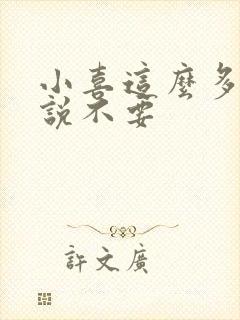 小喜這麼多
說不要
許文廣